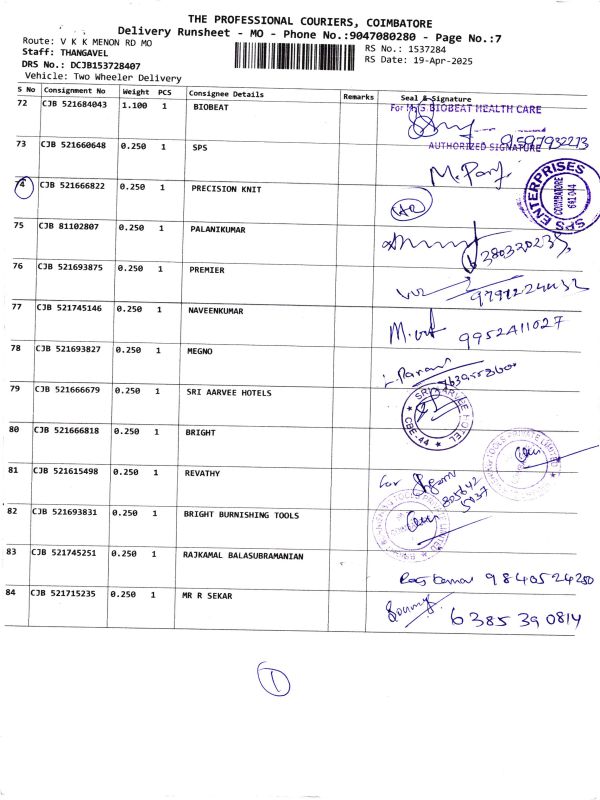 THE PROFESSIONAL COURIERS, COIMBATORE
Delivery Runsheet - MO - Phone No.:9047080280 - Page No.:7
Route: V K K MENON RD MO
RS No.: 1537284
Staff: THANGAVEL
RS Date: 19-Apr-2025
DRS No.: DCJB153728407
Vehicle: Two Wheeler Delivery
S No Consignment No Weight PCS Consignee Details Remarks Seal & Signature
72 CJB 521684043 1.100 1 BIOBEAT
For M/S BIOBEAT HEALTH CARE
AUTHORIZED SIGNATURE
73 CJB 521660648 0.250 1 SPS
74 CJB 521666822 0.250 1 PRECISION KNIT
SPS ENTERPRISES
COIMBATORE
641 044
75 CJB 81102807 0.250 1 PALANIKUMAR
76 CJB 521693875 0.250 1 PREMIER
77 CJB 521745146 0.250 1 NAVEENKUMAR
9952411027
78 CJB 521693827 0.250 1 MEGNO
79 CJB 521666679 0.250 1 SRI AARVEE HOTELS
SRI AARVEE HOTEL
CBE-44
80 CJB 521666818 0.250 1 BRIGHT
81 CJB 521615498 0.250 1 REVATHY
For
82 CJB 521693831 0.250 1 BRIGHT BURNISHING TOOLS
83 CJB 521745251 0.250 1 RAJKAMAL BALASUBRAMANIAN
9840524250
84 CJB 521715235 0.250 1 MR R SEKAR
6385390814
1